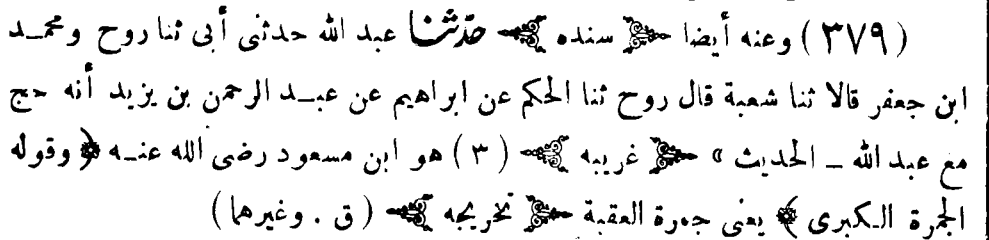 ( ٣٧٩ ) وعنه أيضا ﴿ سنده ﴾ حدثنا عبد الله حدثنى أبى ثنا روح ومحمـد
ابن جعفر قالا ثنا شعبة قال روح ثنا الحكم عن ابراهيم عن عبـد الرحمن بن يزيد أنه حج
مع عبد الله ــ الحديث » ﴿ غريبه ﴾ ( ٣ ) هو ابن مسعود رضى الله عنـه ﴿ وقوله
الجمرة الـكبرى ﴾ يعنى جمرة العقبة ﴿ تخريجه ﴾ ( ق . وغيرهما )